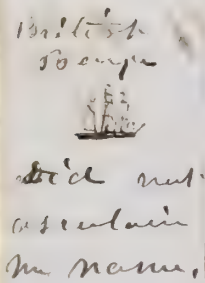 British
Barque
Did not
ascertain
her name.